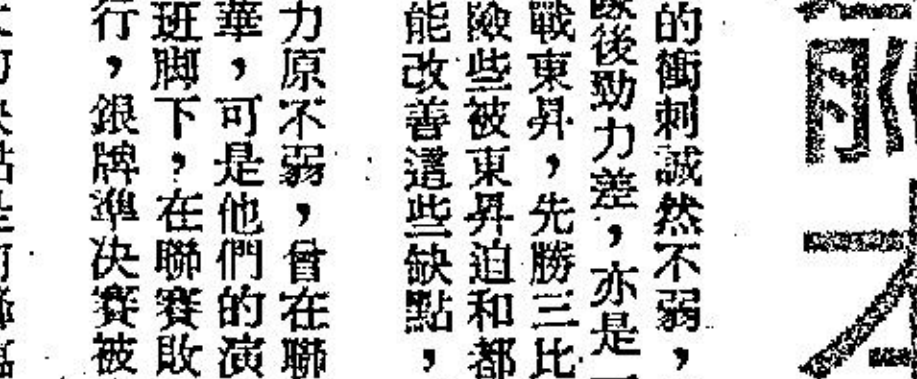 的衝刺誠然不弱，
後勁力差，亦是
戰東昇，先勝三比
險些被東昇迫和都
能改善這些缺點，
力原不弱，曾在聯
華，可是他們的演
班脚下，在聯賽敗
行，銀牌準决賽被